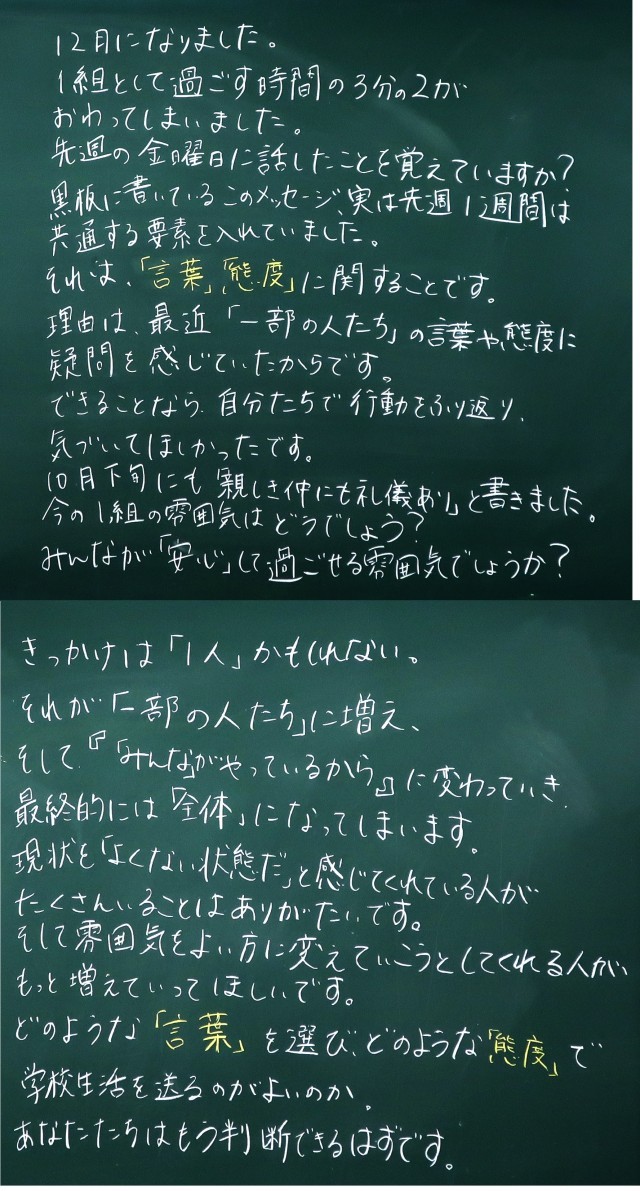 12月になりました。
1組として過ごす時間の3分の2が
おわってしまいました。
先週の金曜日に話したことを覚えていますか?
黒板に書いているこのメッセージ、実は先週1週間は
共通する要素を入れていました。
それは、「言葉」「態度」に関することです。
理由は、最近「一部の人たち」の言葉や態度に
疑問を感じていたからです。
できることなら、自分たちで行動をふり返り、
気づいてほしかったです。
10月下旬にも「親しき仲にも礼儀あり」と書きました。
今の1組の雰囲気はどうでしょう?
みんなが「安心」して過ごせる雰囲気でしょうか?
きっかけは「1人」かもしれない。
それが「一部の人たち」に増え、
そして、『「みんな」がやっているから』に変わっていき、
最終的には「全体」になってしまいます。
現状を「よくない状態だ」と感じてくれている人が
たくさんいることはありがたいです。
そして雰囲気をよい方に変えていこうとしてくれる人が、
もっと増えていってほしいです。
どのような「言葉」を選び、どのような「態度」で
学校生活を送るのがよいのか。
あなたたちはもう判断できるはずです。